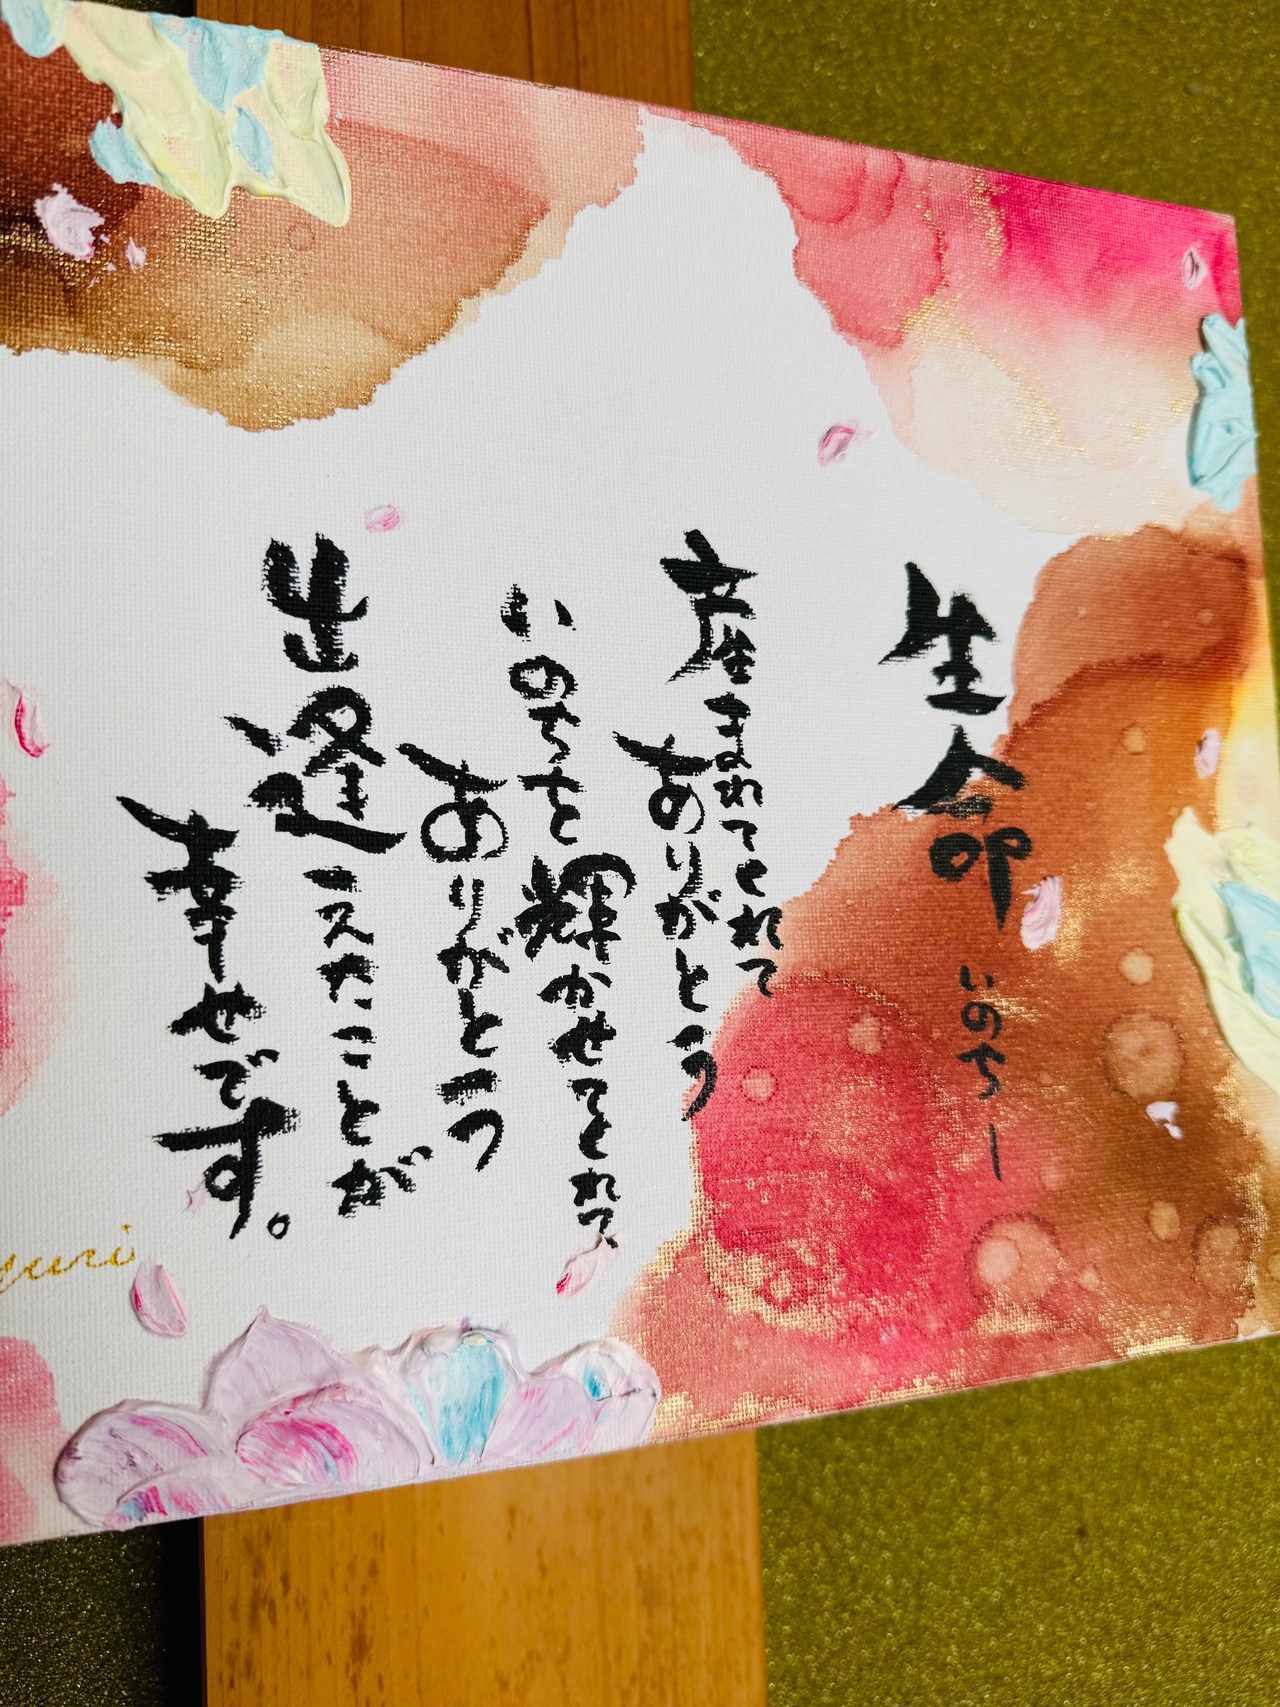 生命 いのち ー
産まれてくれて
ありがとう
いのちを輝かせてくれて、
ありがとう
出逢えたことが
幸せです。
yuri